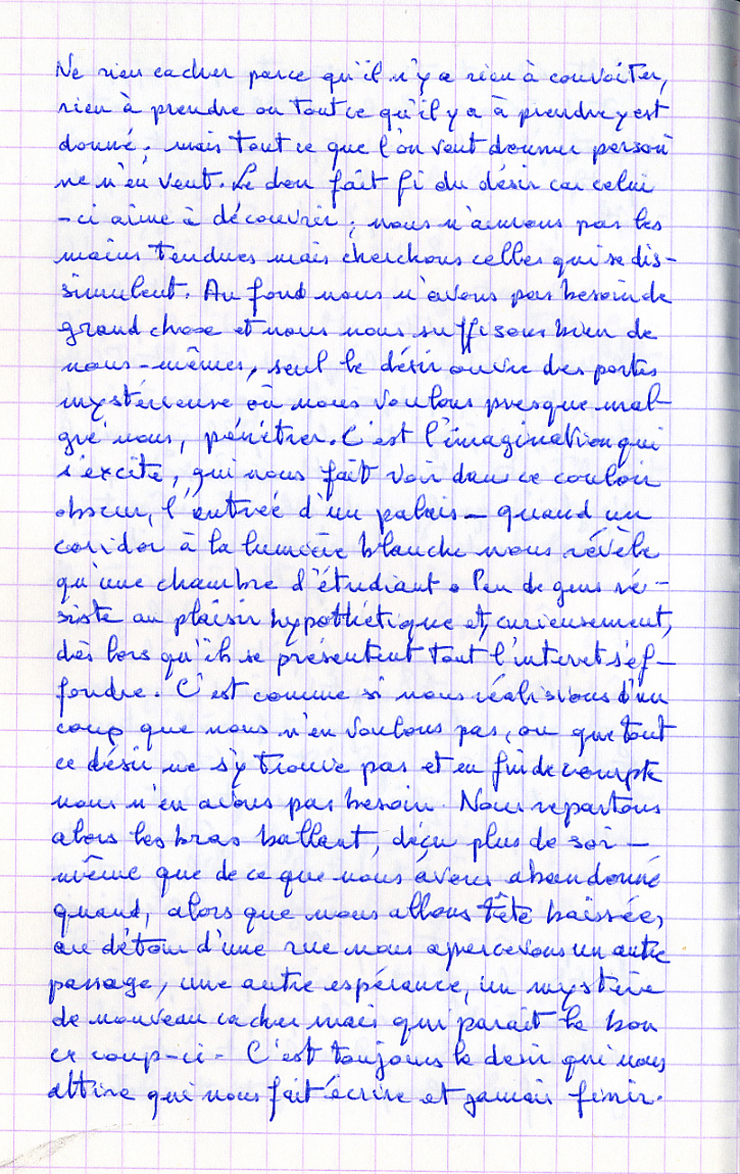 Ne rien cacher parce qu'il n'y a rien à convoiter,
rien à prendre ou tout ce qu'il y a à prendre y est
donné ; mais tout ce que l'on veut donner person
ne n'en veut. Le don fait fi du désir car celui
-ci aime à découvrir ; nous n'aimons pas les
mains tendues mais cherchons celles qui se dis-
simulent. Au fond nous n'avons pas besoin de
grand chose et nous nous suffisons bien de
nous-mêmes, seul le désir ouvre des portes
mystérieuse où nous voulons presque mal-
gré nous, pénétrer. C'est l'imagination qui
s'excite, qui nous fait voir dans ce couloir
obscur, l'entrée d'un palais - quand un
corridor à la lumière blanche nous révèle
qu'une chambre d'étudiant. Peu de gens ré-
siste au plaisir hypothétique et, curieusement,
dès lors qu'ils se présentent tout l'interet s'ef-
fondre. C'est comme si nous réalisions d'un
coup que nous n'en voulons pas, ou que tout
ce désir ne s'y trouve pas et en fin de compte
nous n'en avons pas besoin. Nous repartons
alors les bras ballant, déçu plus de soi-
même que de ce que nous avons abandonné
quand, alors que nous allons tête baissée,
au détour d'une rue nous apercevons un autre
passage, une autre espérance, un mystère
de nouveau cacher mais qui parait le bon
ce coup-ci - C'est toujours le desir qui nous
attire qui nous fait écrire et jamais finir.